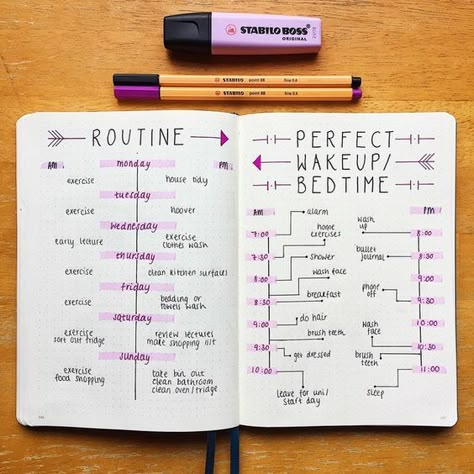 STABILO BOSS
ORIGINAL
STABILO point 88 fine 0.4
STABILO point 88 fine 0.4
ROUTINE
AM
PM
monday
exercise
house tidy
tuesday
exercise
hoover
wednesday
early lecture
exercise
clothes wash
thursday
exercise
clean kitchen surfaces
friday
exercise
bedding or
towels wash
saturday
exercise
sort out fridge
review lectures
make shopping list
sunday
exercise
food shopping
take bin out
clean bathroom
clean oven/fridge
PERFECT
WAKEUP/
BEDTIME
AM
7:00
7:30
8:00
8:30
9:00
9:30
10:00
alarm
home
exercises
shower
wash face
breakfast
do hair
brush teeth
get dressed
leave for uni/
start day
PM
8:00
8:30
9:30
10:00
10:30
11:00
wash
up
bullet
journal
phone
off
wash
face
brush
teeth
sleep